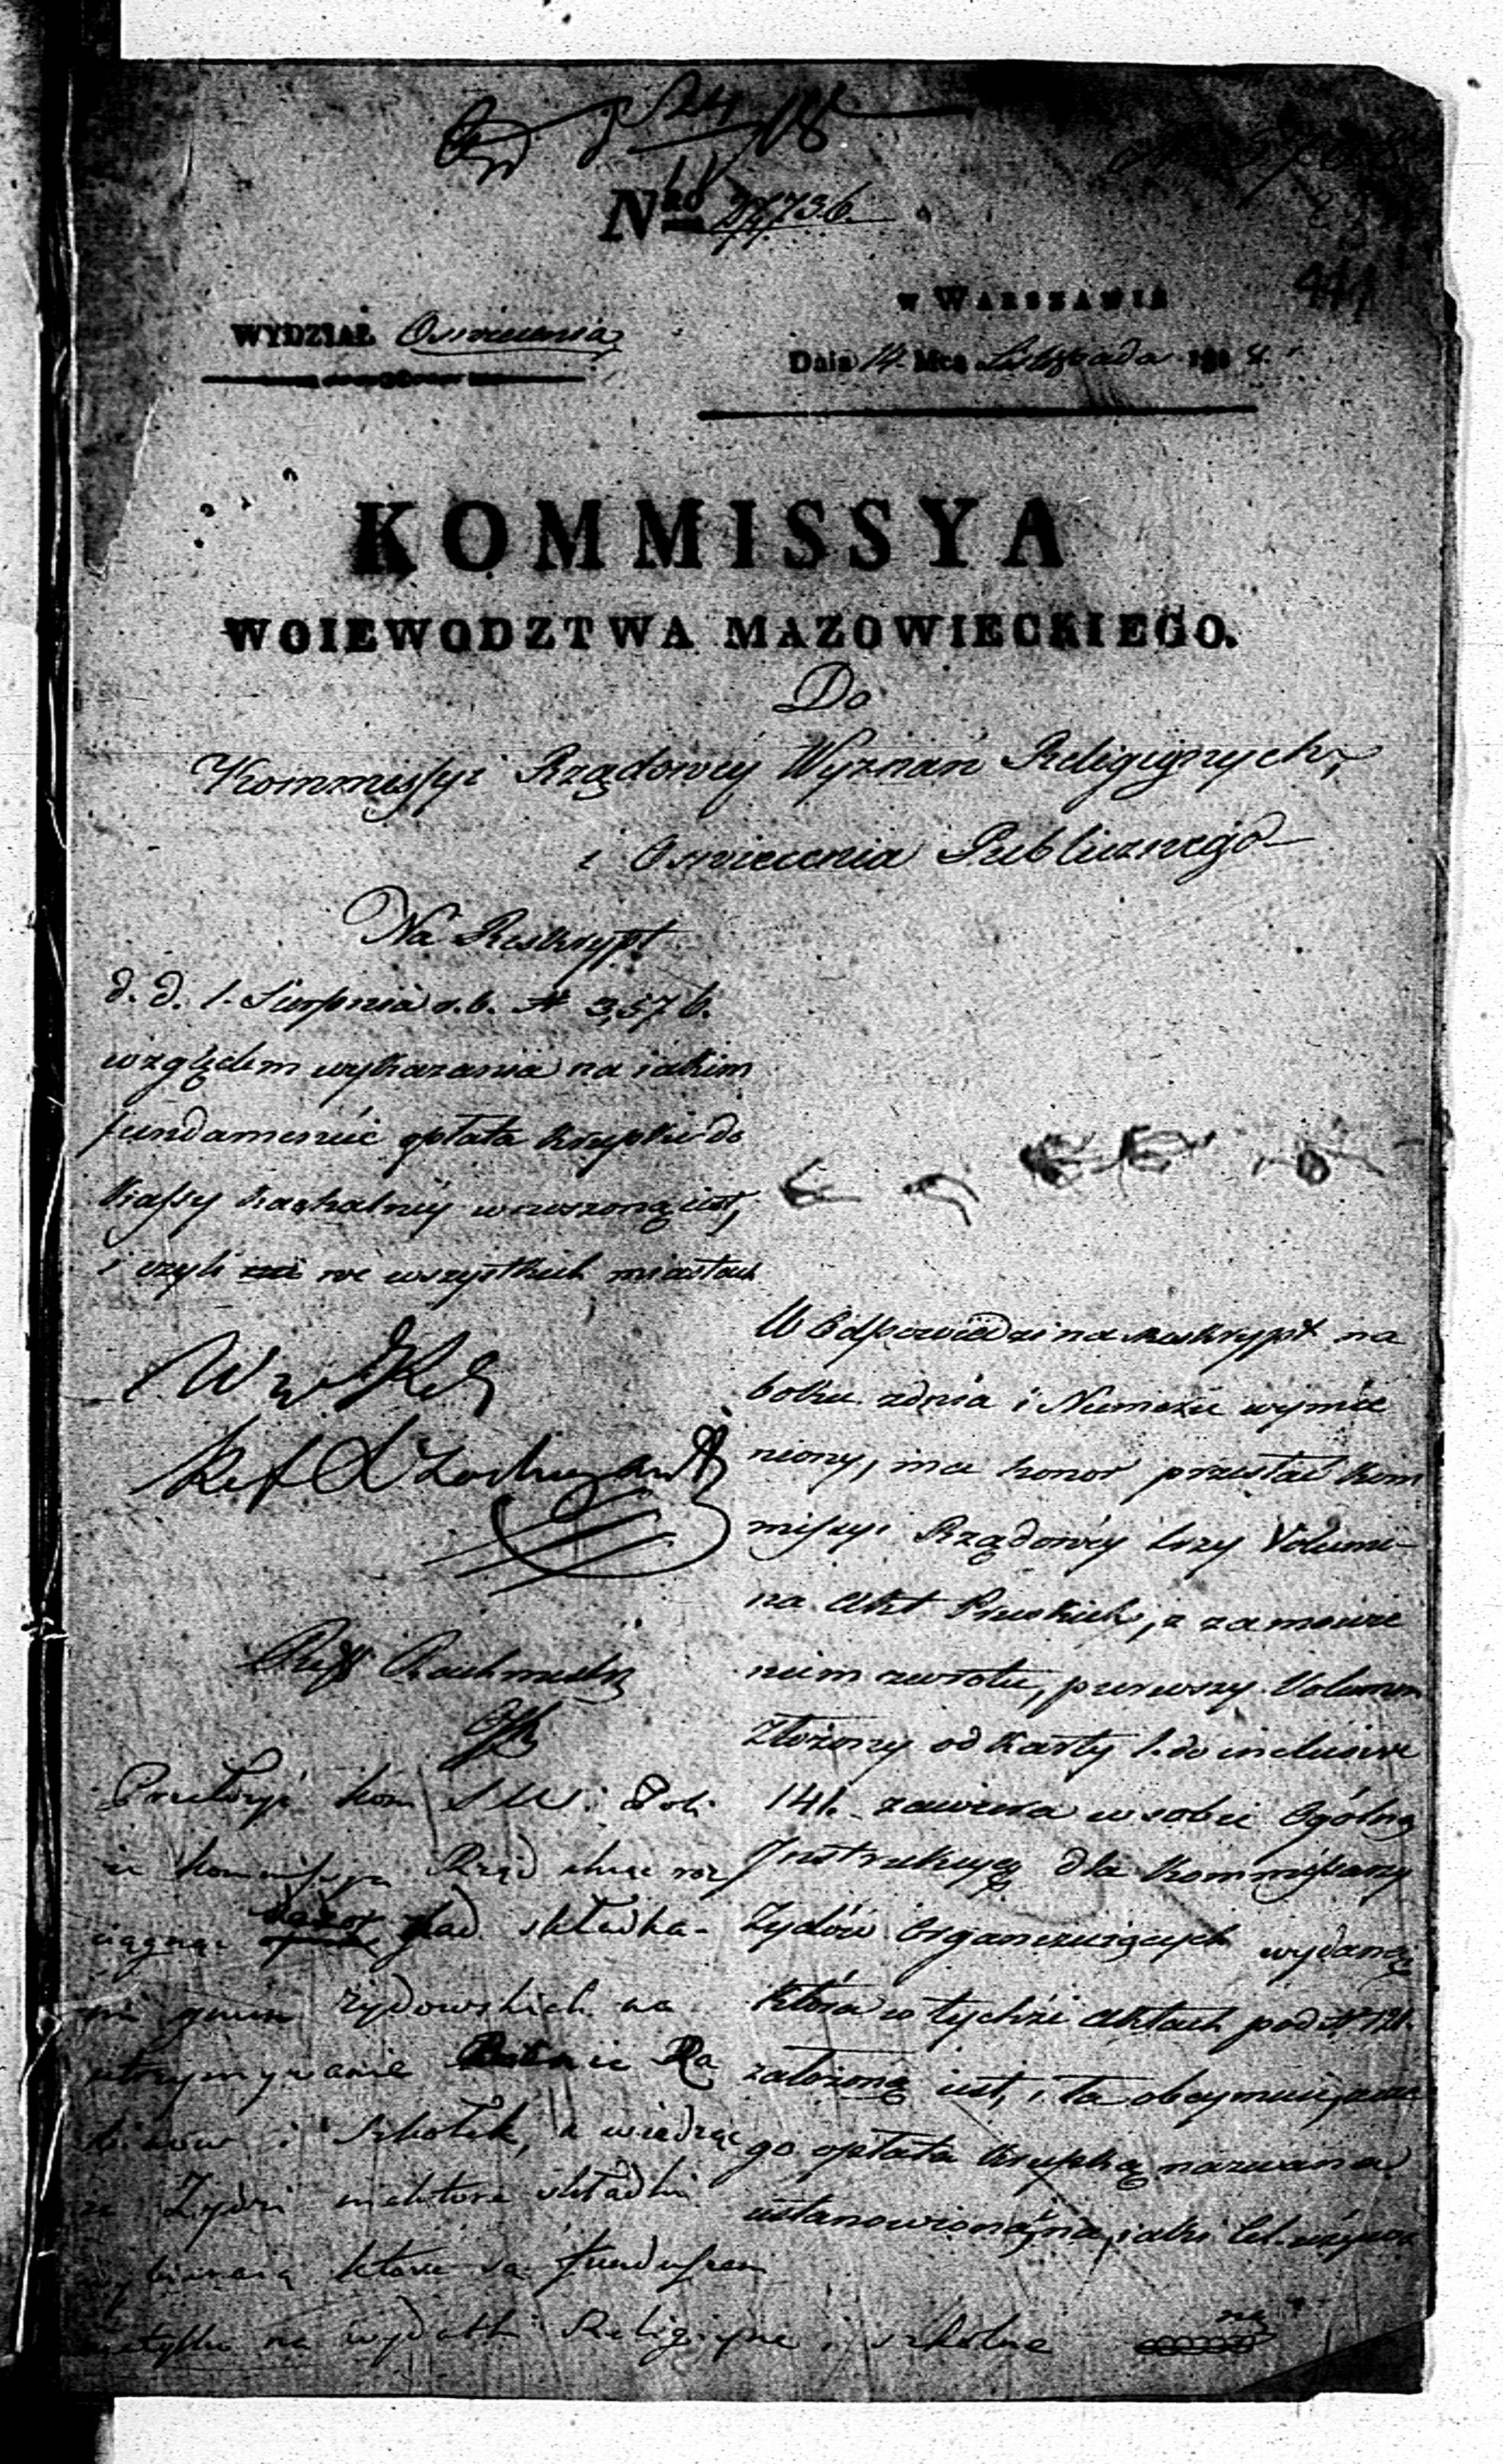 24/11 18
Nro 27736.
441
WYDZIAŁ Oswiecenia
w WARSZAWIE
Dnia 14. Mca Listopada 1818.
KOMMISSYA
WOIEWODZTWA MAZOWIECKIEGO.
Do
Kommissyi Rządowéy Wyznań Religiynych,
i Oswiecenia Publicznego
Na Reskrypt
d. d. 1. Sierpnia r. b. N 3,576.
względem wykazania na iakim
fundamencie opłata krupki do
Kassy Kachalnéy wnoszoną iest,
i czyli we wszystkich miastach
W Odpowiedzi na reskrypt na
boku zdnia i Numeru wymie
niony, ma honor przesłać Kom
missyi Rządowéy trzy Volumi-
na Akt Pruskich, z zamówie
niem zwrotu, pierwszy Volumen
złożony od Karty 1. do inclusive
141. zawiera w sobie Ogólną
Instrukcyą dla Kommissarzy
Żydów Organizuiących wydaną
która w tychże Aktach pod N 121.
założoną iest, i ta obeymuie,
go opłata Krupką nazwana
ustanowioną, na iaki Cel
Ref
Reff
Kom
Kommissya Rząd chcąc roz
ciągnąć dozór nad składka-
mi gmin żydowskich na
utrzymywanie Ra
binów i Szkółek, a wiedząc
że Żydzi niektóre składki
wybieraią które są funduszem
nietylko na wydatki Religiyne i szkolne
na